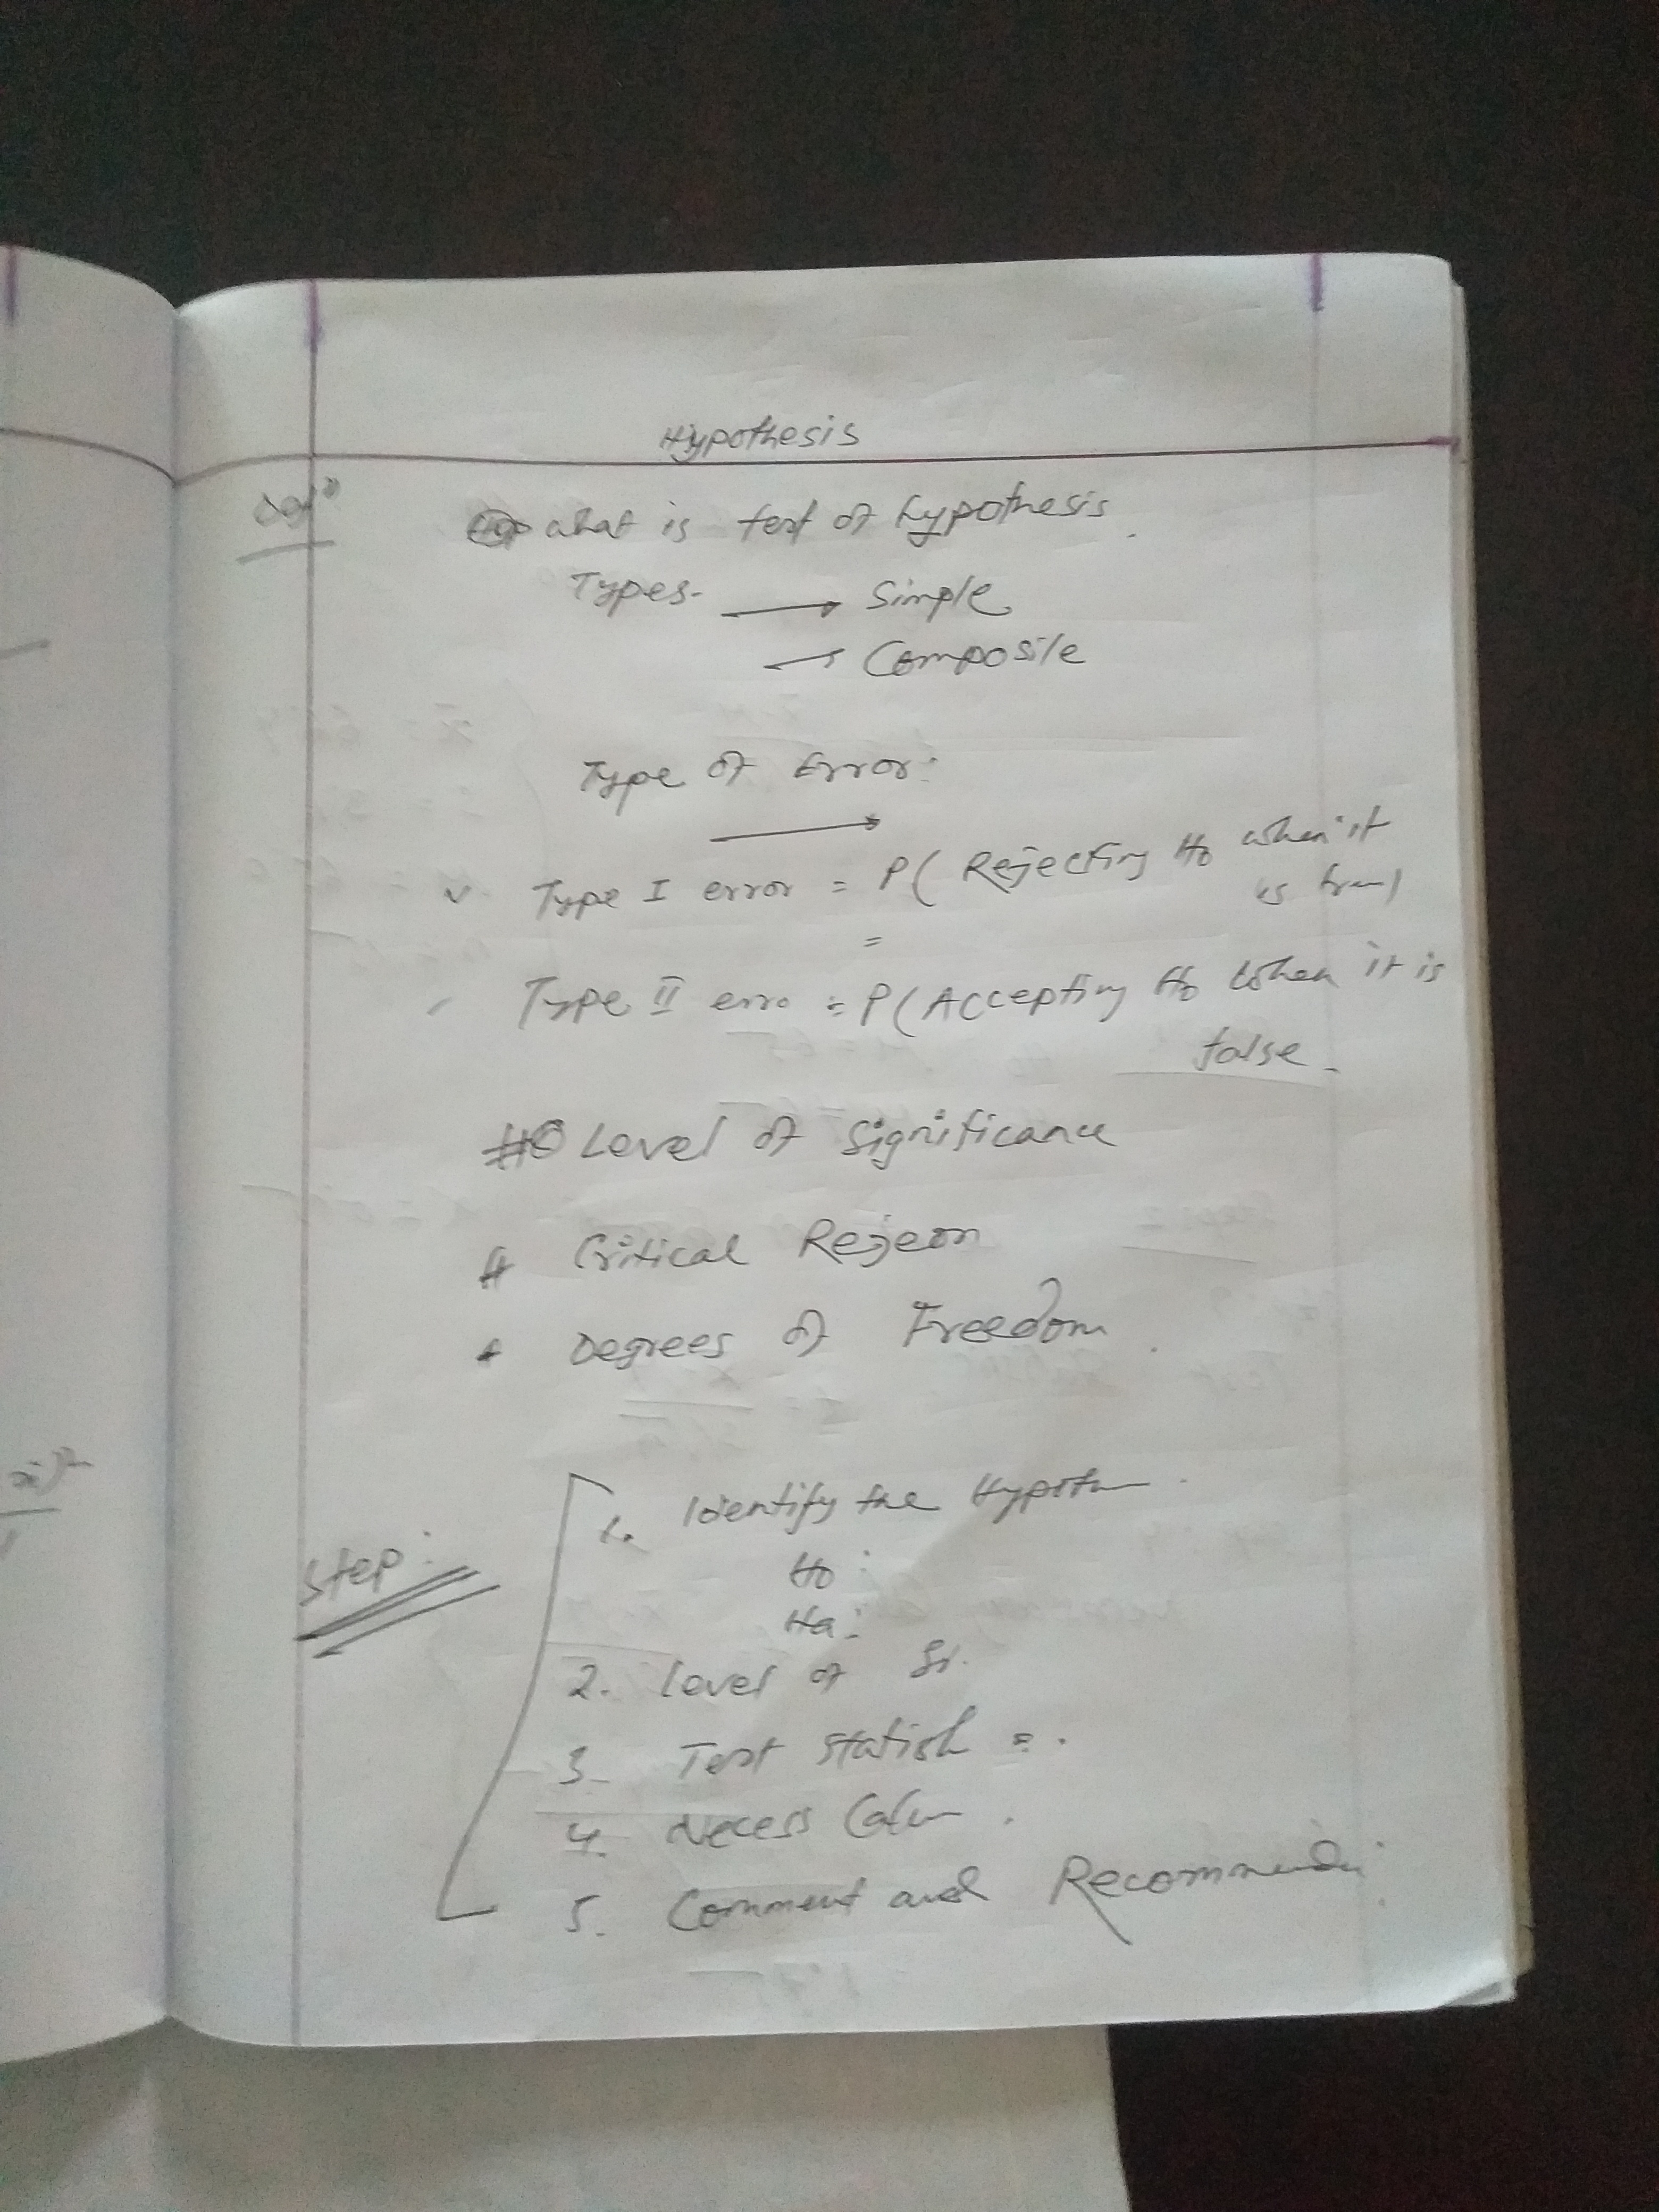 Hypothesis
Defn
what is test of hypothesis.
Types. → Simple
→ Composite
Type of Error:
→
Type I error = P( Rejecting Ho when it
is true)
=
Type II erro = P(Accepting Ho when it is
false.
# Level of Significance
# Critical Rejeon
Degrees of Freedom.
Step:
1. Identify the
Ho:
Ha:
2. Level of Si.
3. Test
4. Necess
5. Comment and